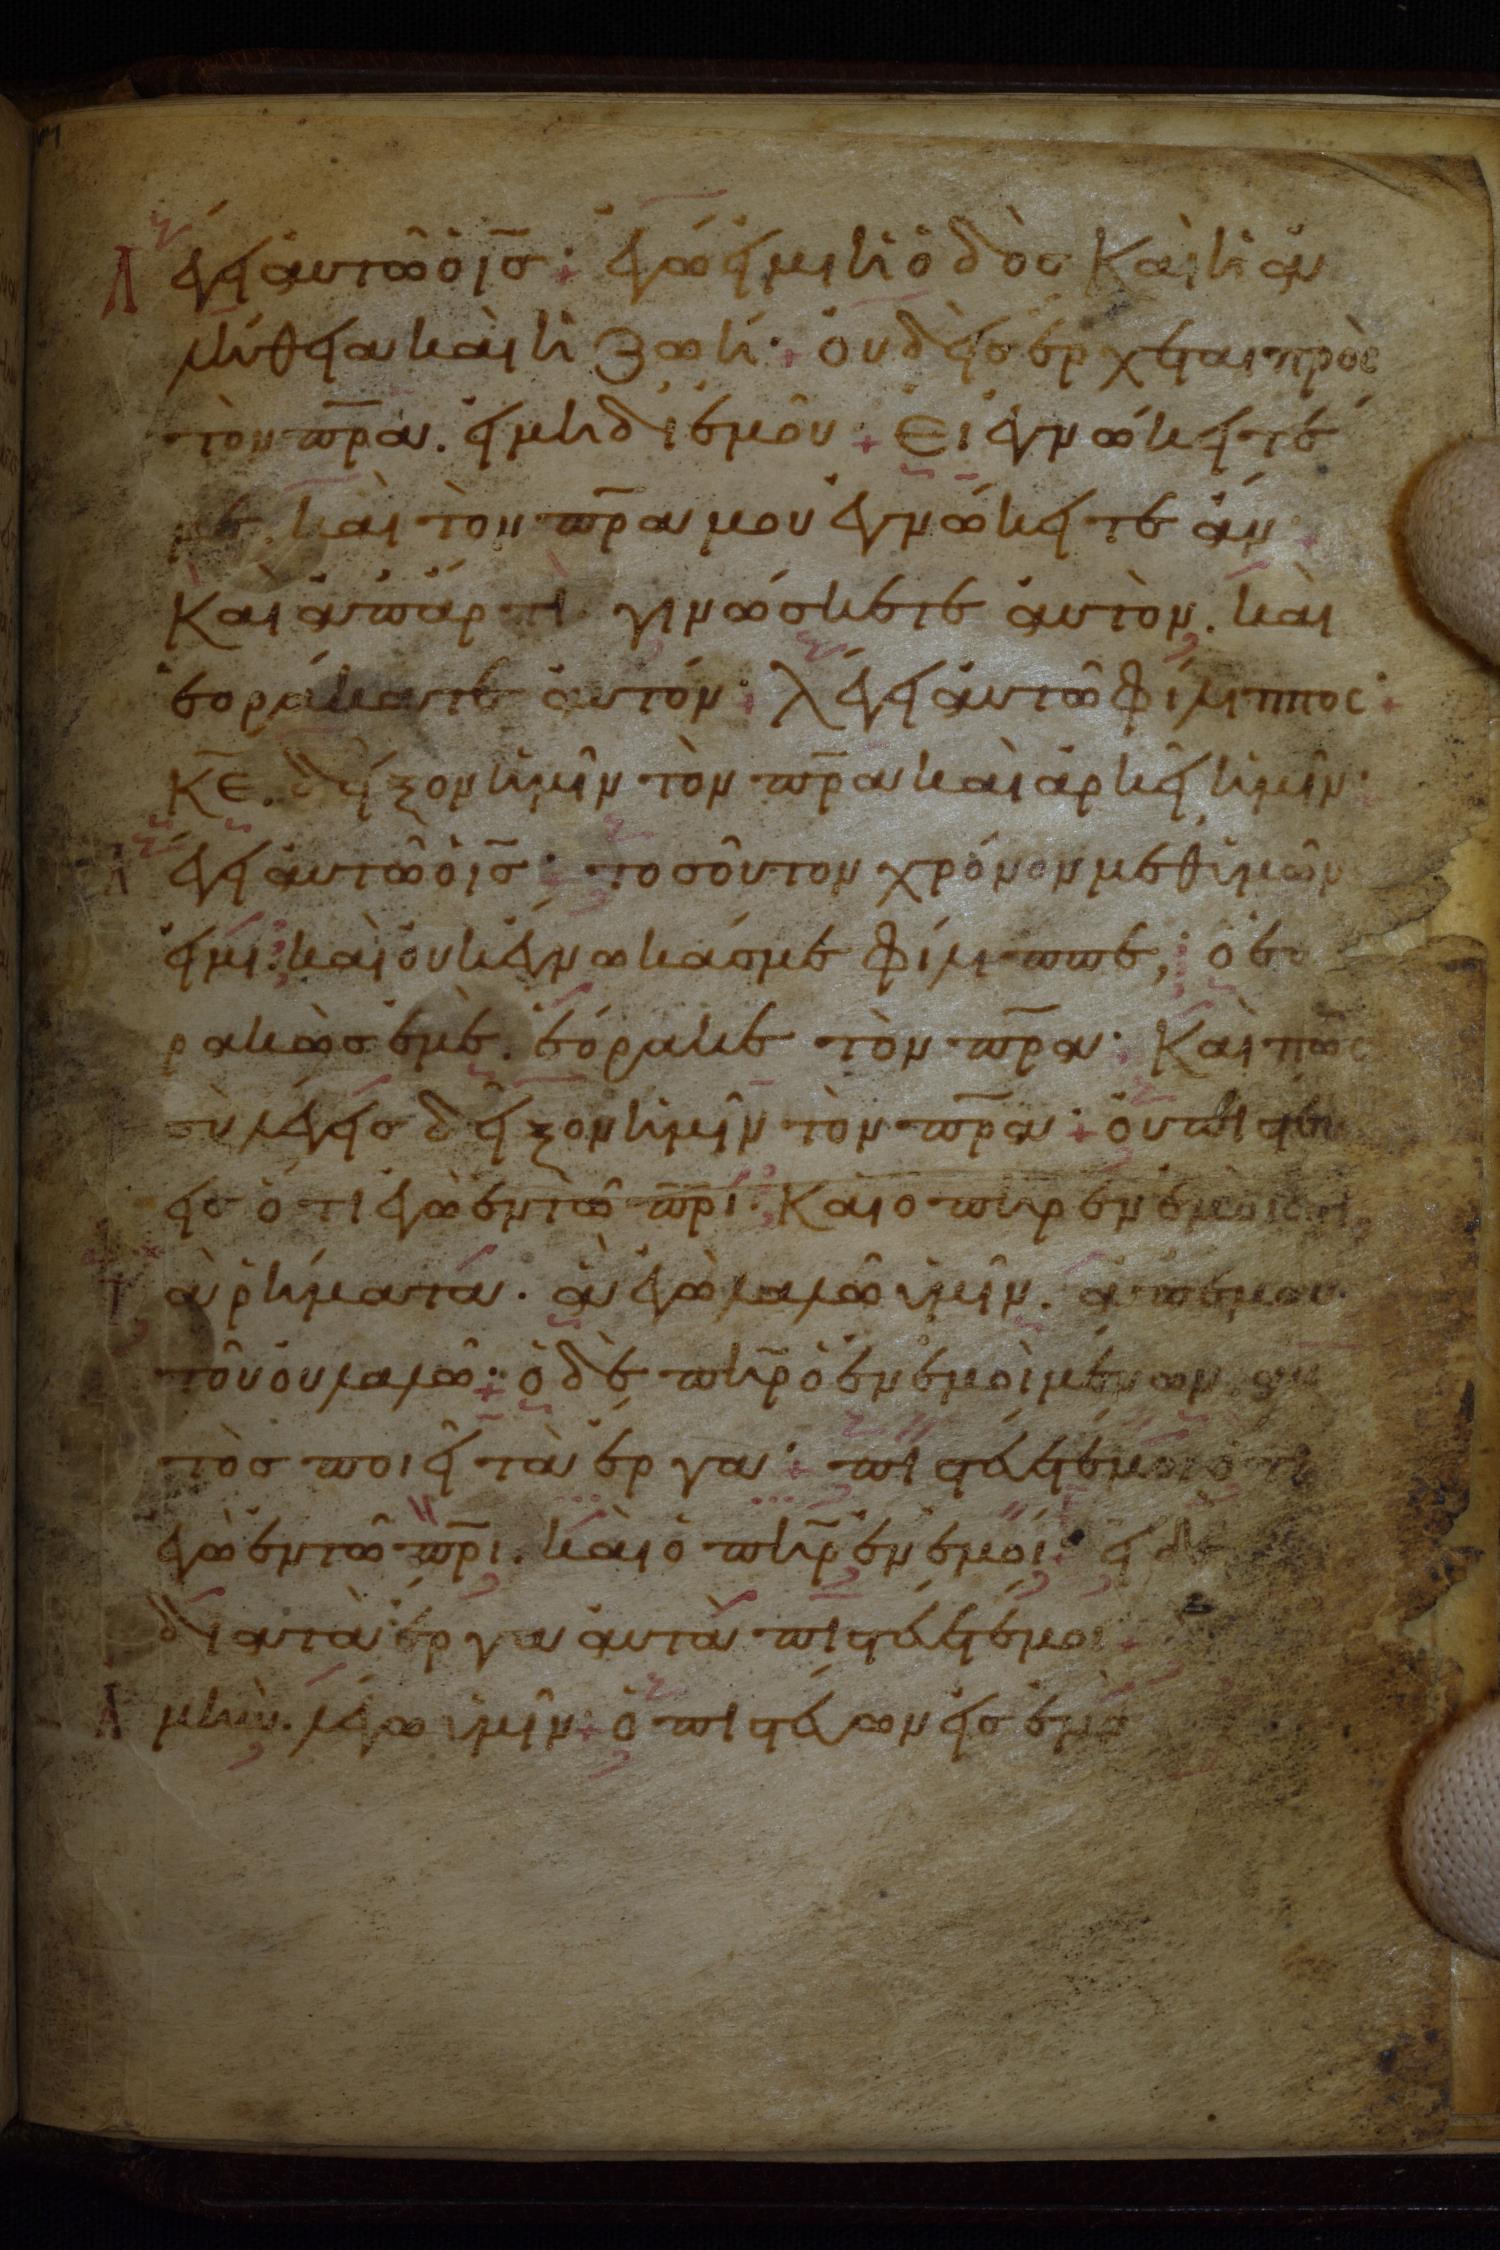 Λέγει αὐτῶ ὁ ις· ἐγώ εἰμι ἡ ὁδὸς Καὶ ἡ ἀ
λήθεια καὶ ἡ ζωή· οὐδεὶς ἔρχεται πρὸς
τὸν πρα. εἰ μὴ δι ἐμοῦ· Ει ἐγνώκειτέ
με. καὶ τὸν πρα μου ἐγνώκειτε ἄν·
Καὶ ἀπάρτι γινώσκετε αὐτὸν. καὶ
ἑοράκατε αὐτόν· λέγει αὐτῶ Φίλιππος·
Κε. δεῖξον ἡμῖν τὸν πρα καὶ ἀρκεῖ ἡμῖν·
Λέγει αὐτῶ ὁ ις· τοσοῦτον χρόνον μεθ ὑμῶν
εἰμι. καὶ οὐκ ἔγνωκάς με Φίλιππε; ὁ ἑο
ρακὼς ἐμὲ. ἑόρακε τὸν πρα· Καὶ πῶς
σὺ λέγεις δεῖξον ἡμῖν τὸν πρα· οὐ πιστεύ
εις ὅτι ἐγὼ ἐν τῶ πρι. Καὶ ο πηρ ἐν ἐμοί ἐστι,
τὰ ῥήματα. ἃ ἐγὼ λαλῶ ὑμῖν. ἀπ ἐμαυ
τοῦ οὐ λαλῶ· ὁ δὲ πηρ ὁ ἐν ἐμοὶ μένων αὐ
τὸς ποιεῖ τὰ ἔργα· πιστεύετέ μοι ὅτι
ἐγὼ ἐν τῶ πρι. καὶ ὁ πηρ ἐν ἐμοί· εἰ δὲ
διὰ τὰ ἔργα αὐτὰ πιστεύετέ μοι
Ἀμὴν. λέγω ὑμῖν· ὁ πιστεύων εἰς ἐμὲ